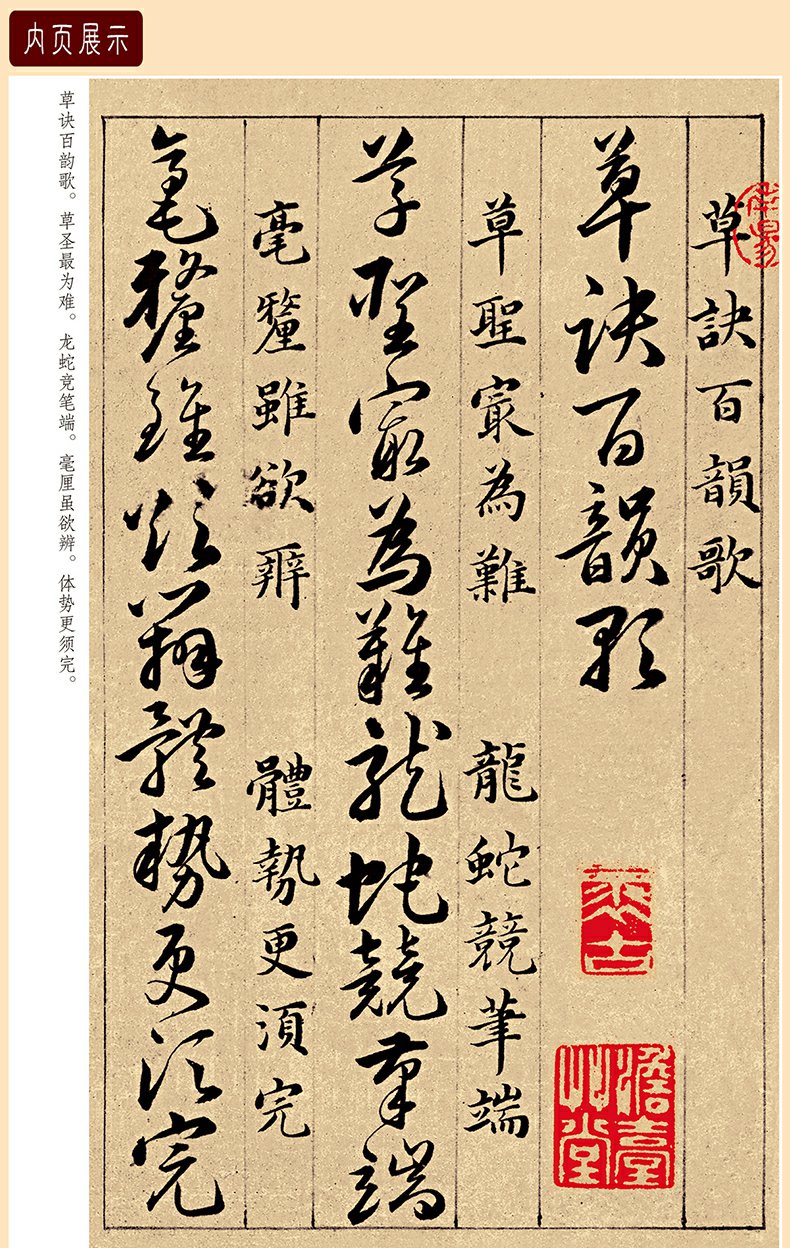 内页展示
草诀百韵歌。草圣最为难。龙蛇竞笔端。毫厘虽欲辨。体势更须完。
草訣百韻歌
草訣百韻歌
草聖最為難 龍蛇競筆端
草聖最為難龍蛇競筆端
毫釐雖欲辨 體勢更須完
毫釐雖欲辨體勢更須完
澹臺艸堂